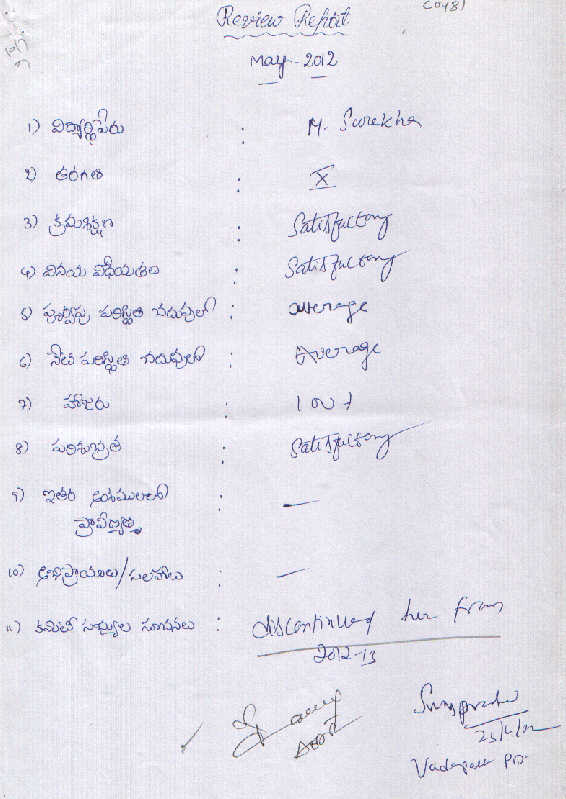 C0481
Review Report
May-2012
1) విద్యార్థిపేరు : M. Surekha
2) తరగతి : X
3) క్రమశిక్షణ : Satisfactory
4) వినయ విధేయతలు : Satisfactory
5) పూర్వపు పరిస్థితి చదువులో : average
6) నేటి పరిస్థితి చదువులో : Average
7) హాజరు :
8) పరిశుభ్రత : Satisfactory
9) ఇతర అంశములలో : —
ప్రావీణ్యత
10) అభిప్రాయాలు/సలహాలు : —
11) కమిటీ సభ్యుల సూచనలు : discontinued her from
2012-13